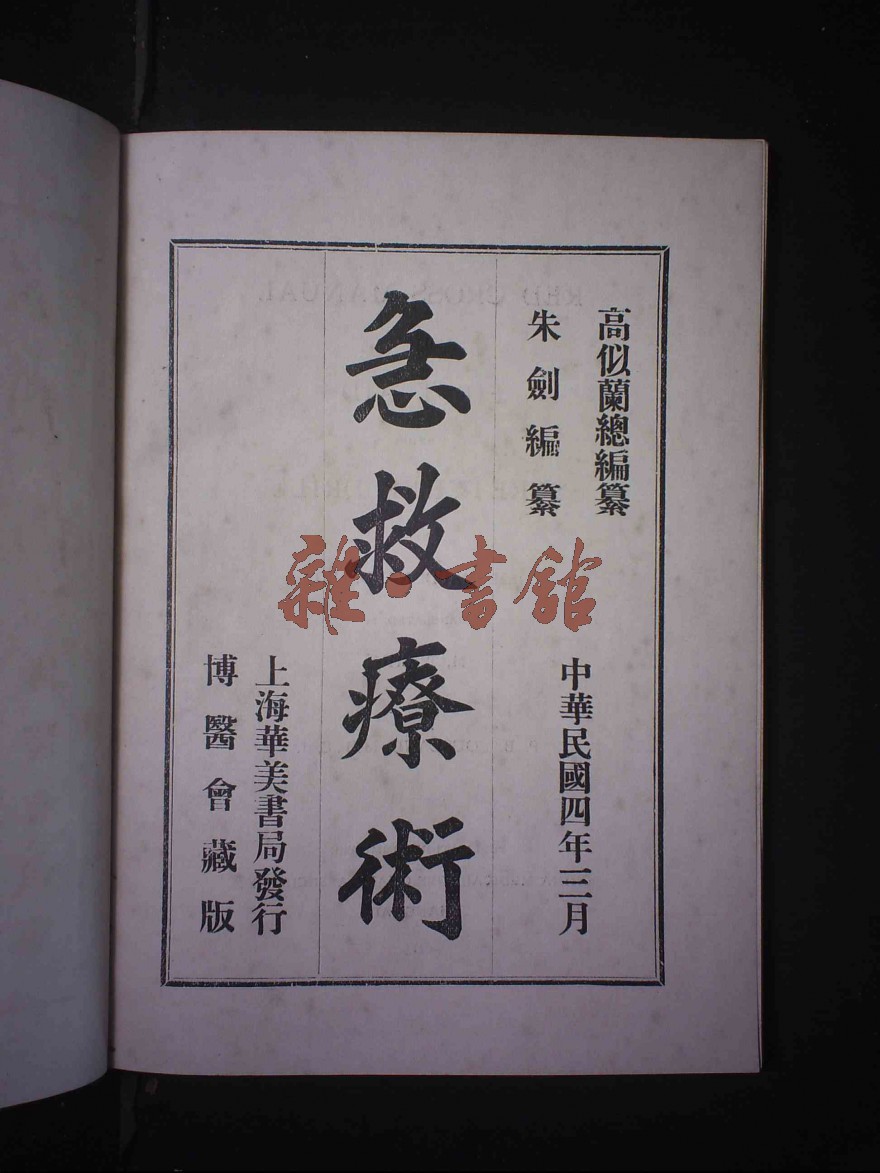 高似蘭總編纂
朱劍編纂
中華民國四年三月
急救療術
上海華美書局發行
博醫會藏版
雜·書館